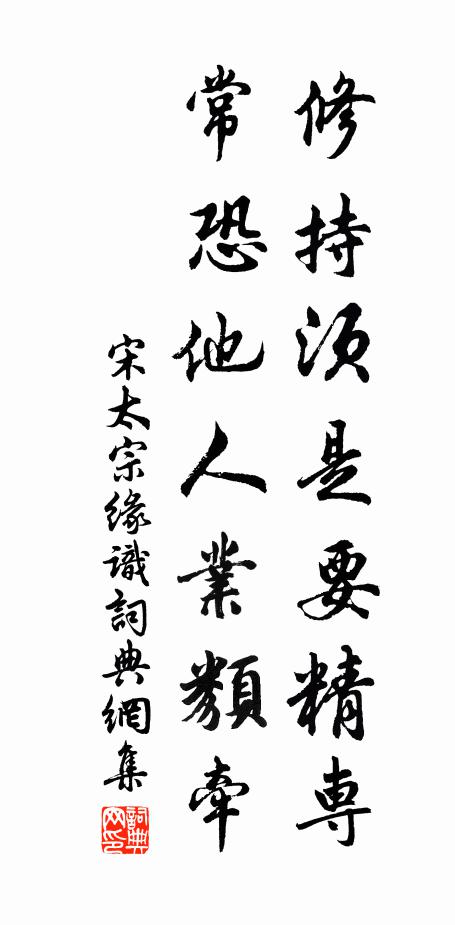 修持須是要精專
常恐他人業類牽
宋太宗緣識詞典網集
詞典網印